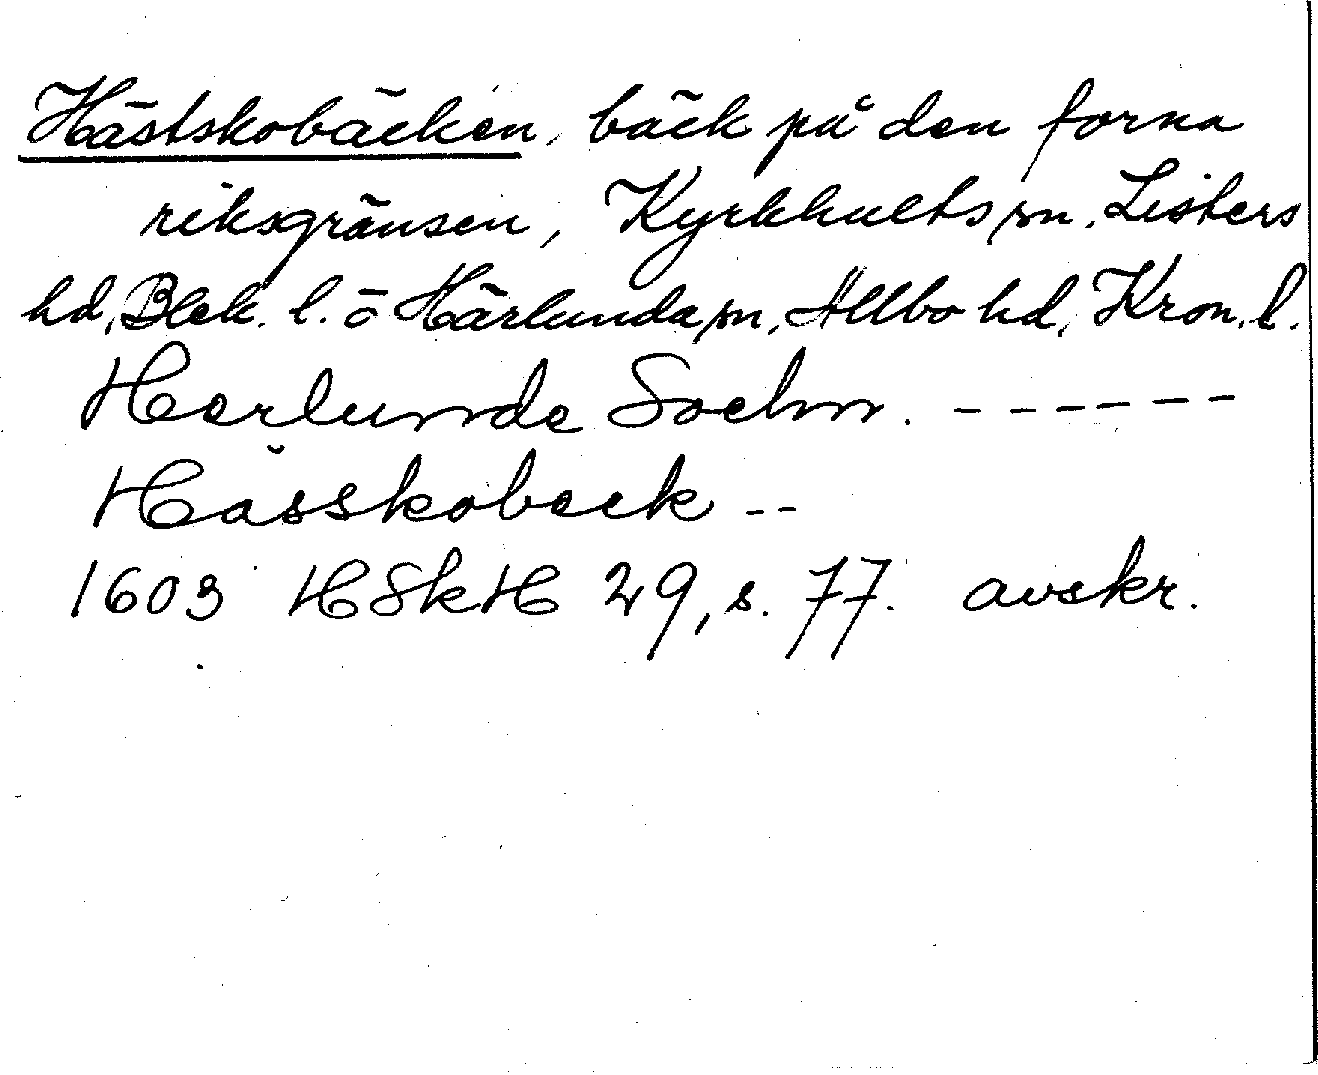 Hästskobäcken, bäck på den forna
riksgränsen, Kyrkhults sn. Listers
hd, Blek. l. ö Härlunda sn, Allbo hd, Kron. l.
Herlunda Sochn. ------
Hässkobeck --
1603 HSkH 29, s. 77. avskr.